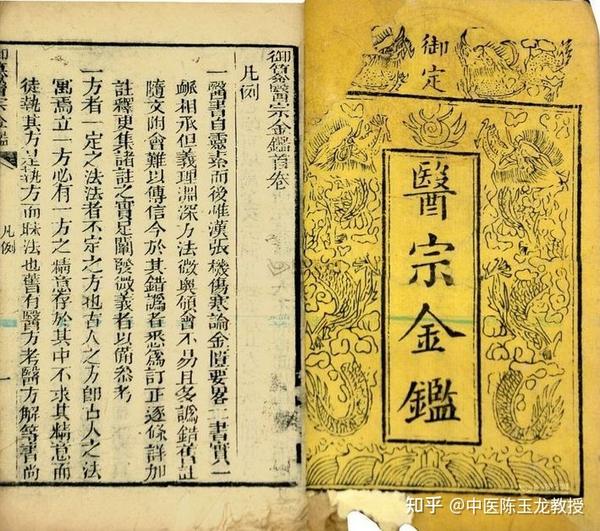 御定
醫宗金鑑
御纂醫宗金鑑首卷
凡例
一醫書自靈素而後惟漢張機傷寒論金匱要畧二書實一
脈相承但義理淵深方法微奧領會不易且多譌錯舊註
隨文附會難以傳信今於其錯譌者悉為訂正逐條詳加
註釋更集諸註之實足闡發微義者以備參考
一方者一定之法法者不定之方也古人之方即古人之法
寓焉立一方必有一方之精意存於其中不求其精意而
徒執其方是執方而昧法也舊有醫方考醫方解等書尚
凡例
一
知乎 @中医陈玉龙教授